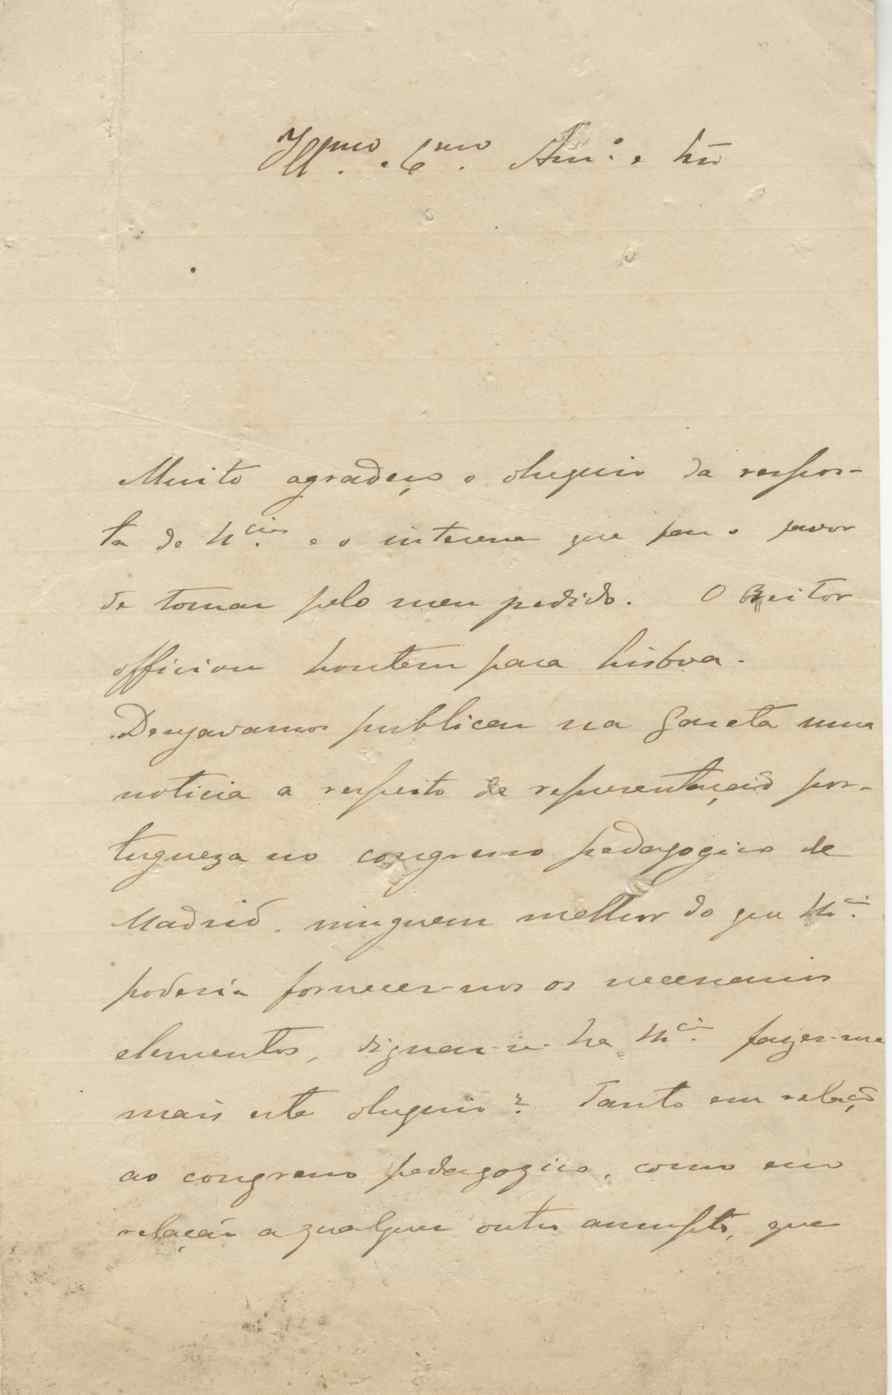 Illmo. e Exmo. Am.º e Sñr
Muito agradeço o obsequio da respos-
ta de V. Ex.cia e o interesse que faz o favor
de tomar pelo meu pedido. O Reitor
officiou hontem para Lisboa.
Desejavamos publicar na Gazeta uma
noticia a respeito da representação por-
tugueza no congresso pedagogico de
Madrid. ninguem melhor do que V. Ex.cia
poderia fornecer-nos os necessarios
elementos, dignar-se-ha V. Ex.cia fazer-me
mais este obsequio? Tanto em relação
ao congresso pedagogico, como em
relação a qualquer outro assumpto, que